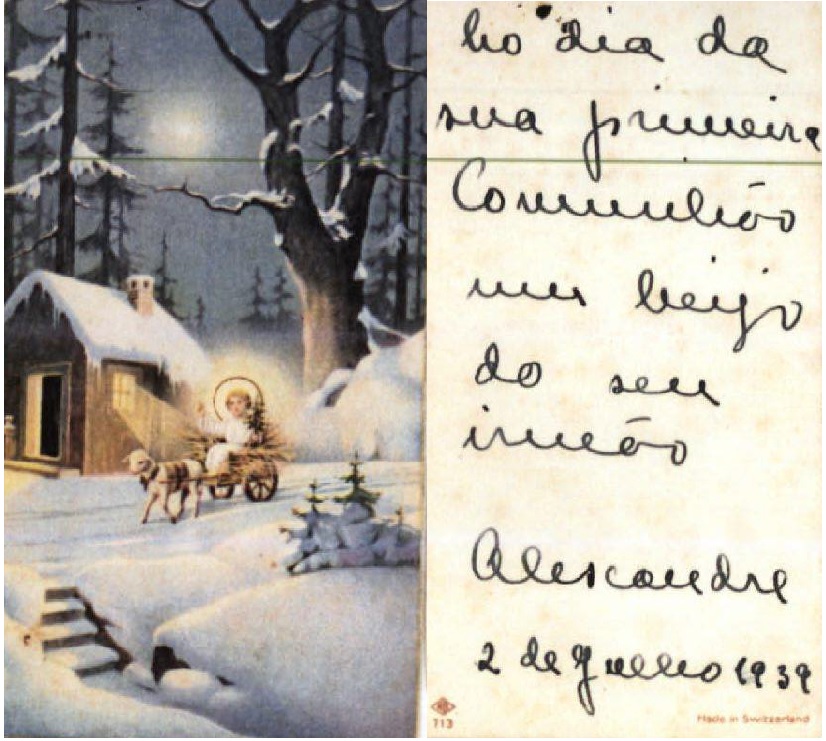 No dia da
sua primeira
Comunhão
um beijo
do seu
irmão
Alexandre
2 de Julho 1939
713
Made in Switzerland